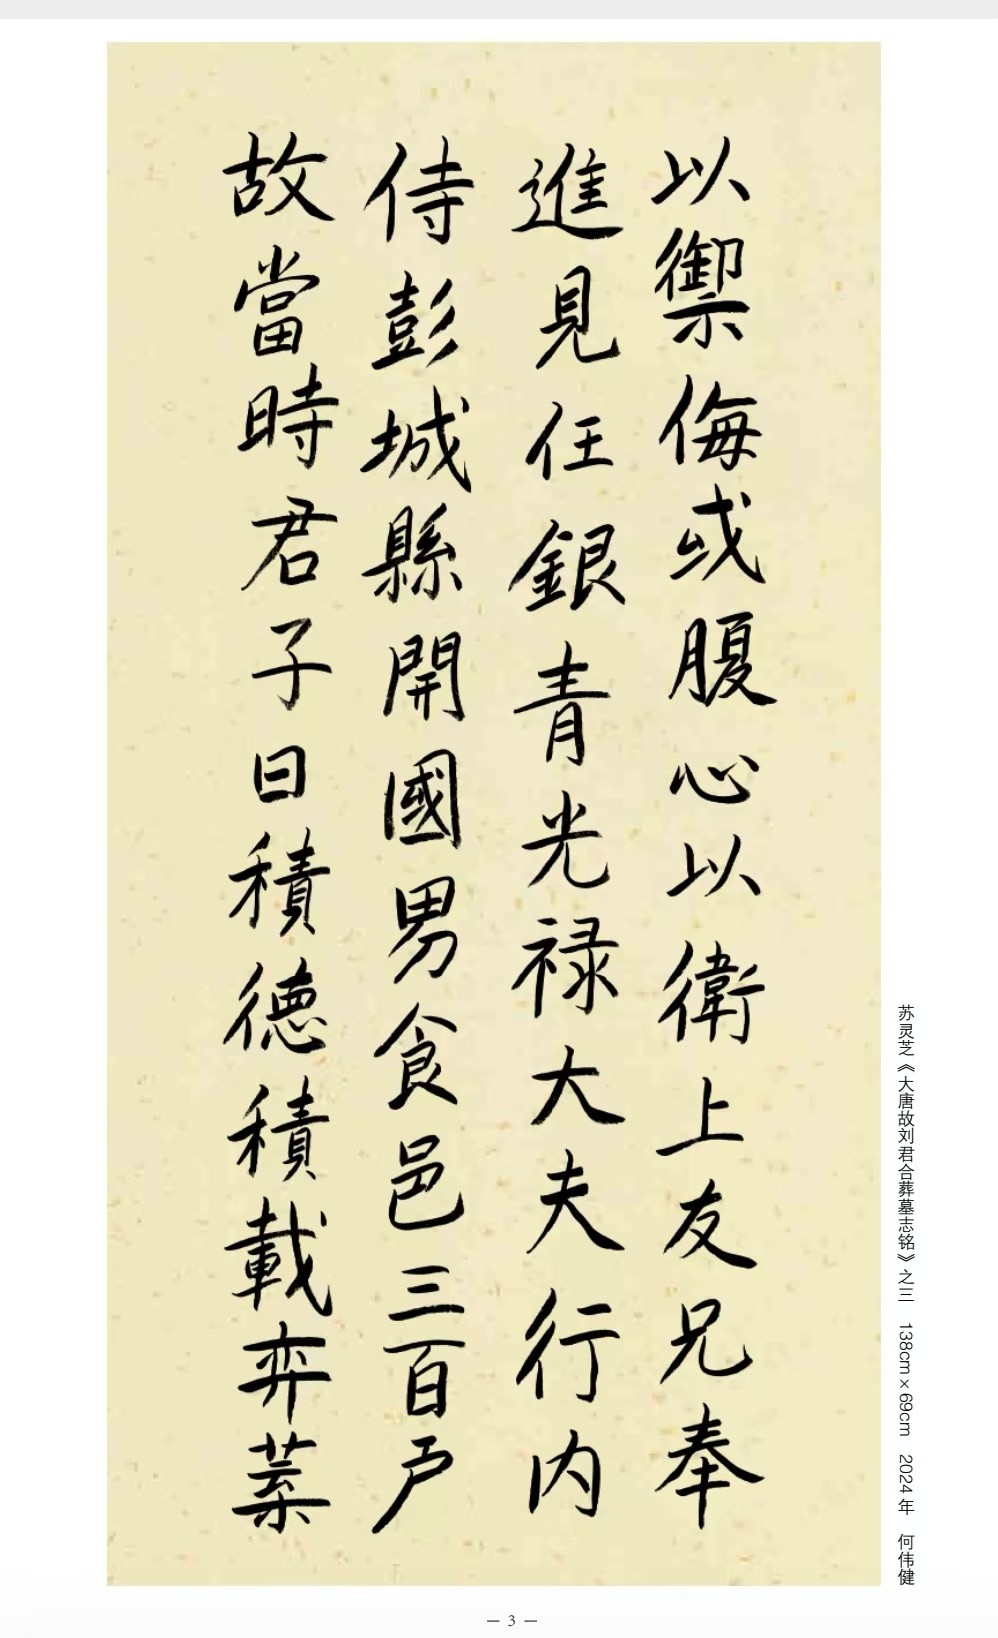 以禦侮或腹心以衛上友兄奉
進見任銀青光禄大夫行内
侍彭城縣開國男食邑三百户
故當時君子曰積德積載弈葉
苏灵芝《大唐故刘君合葬墓志铭》之三 138cm×69cm 2024年 何伟健
— 3 —